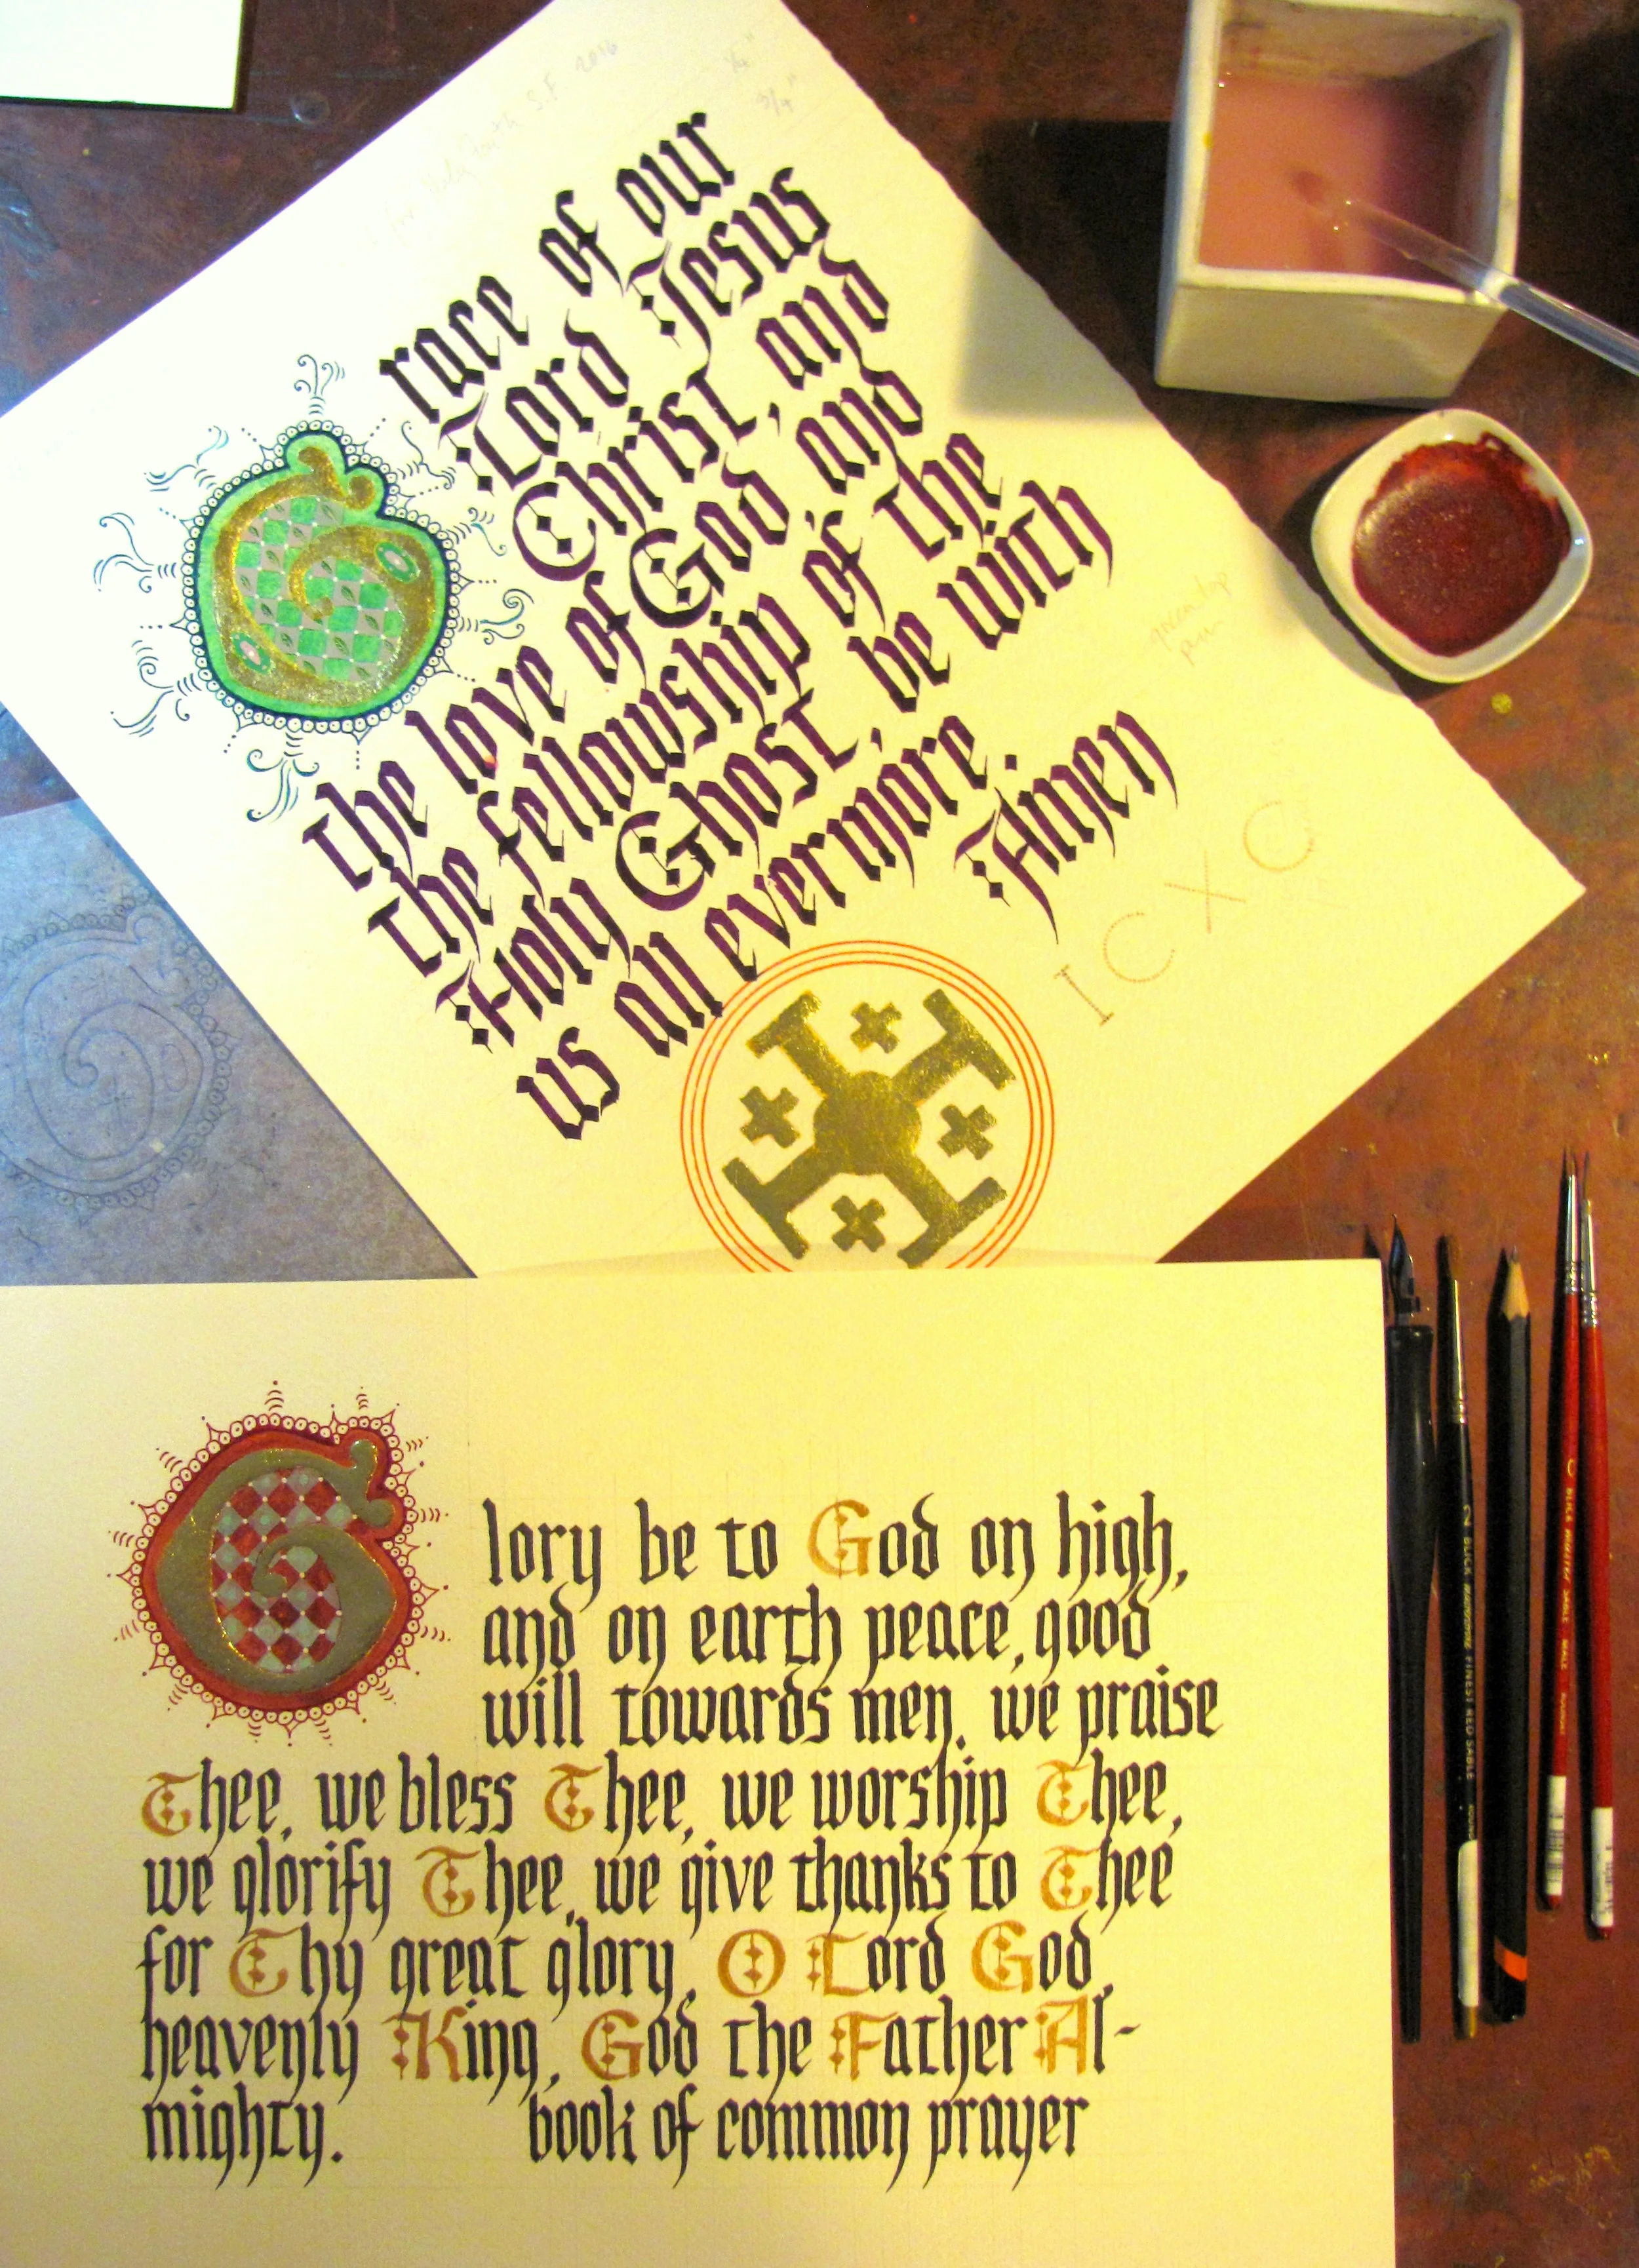 S.F 2016
Grace of our
Lord Jesus
Christ, and
the love of God, and
the fellowship of the
Holy Ghost, be with
us all evermore.
Amen
green top
IC XC
Glory be to God on high,
and on earth peace, good
will towards men. we praise
Thee, we bless Thee, we worship Thee,
we glorify Thee, we give thanks to Thee
for Thy great glory, O Lord God,
heavenly King, God the Father Al-
mighty. book of common prayer
2 BLICK FINEST RED SABLE
BLICK MASTER SABLE